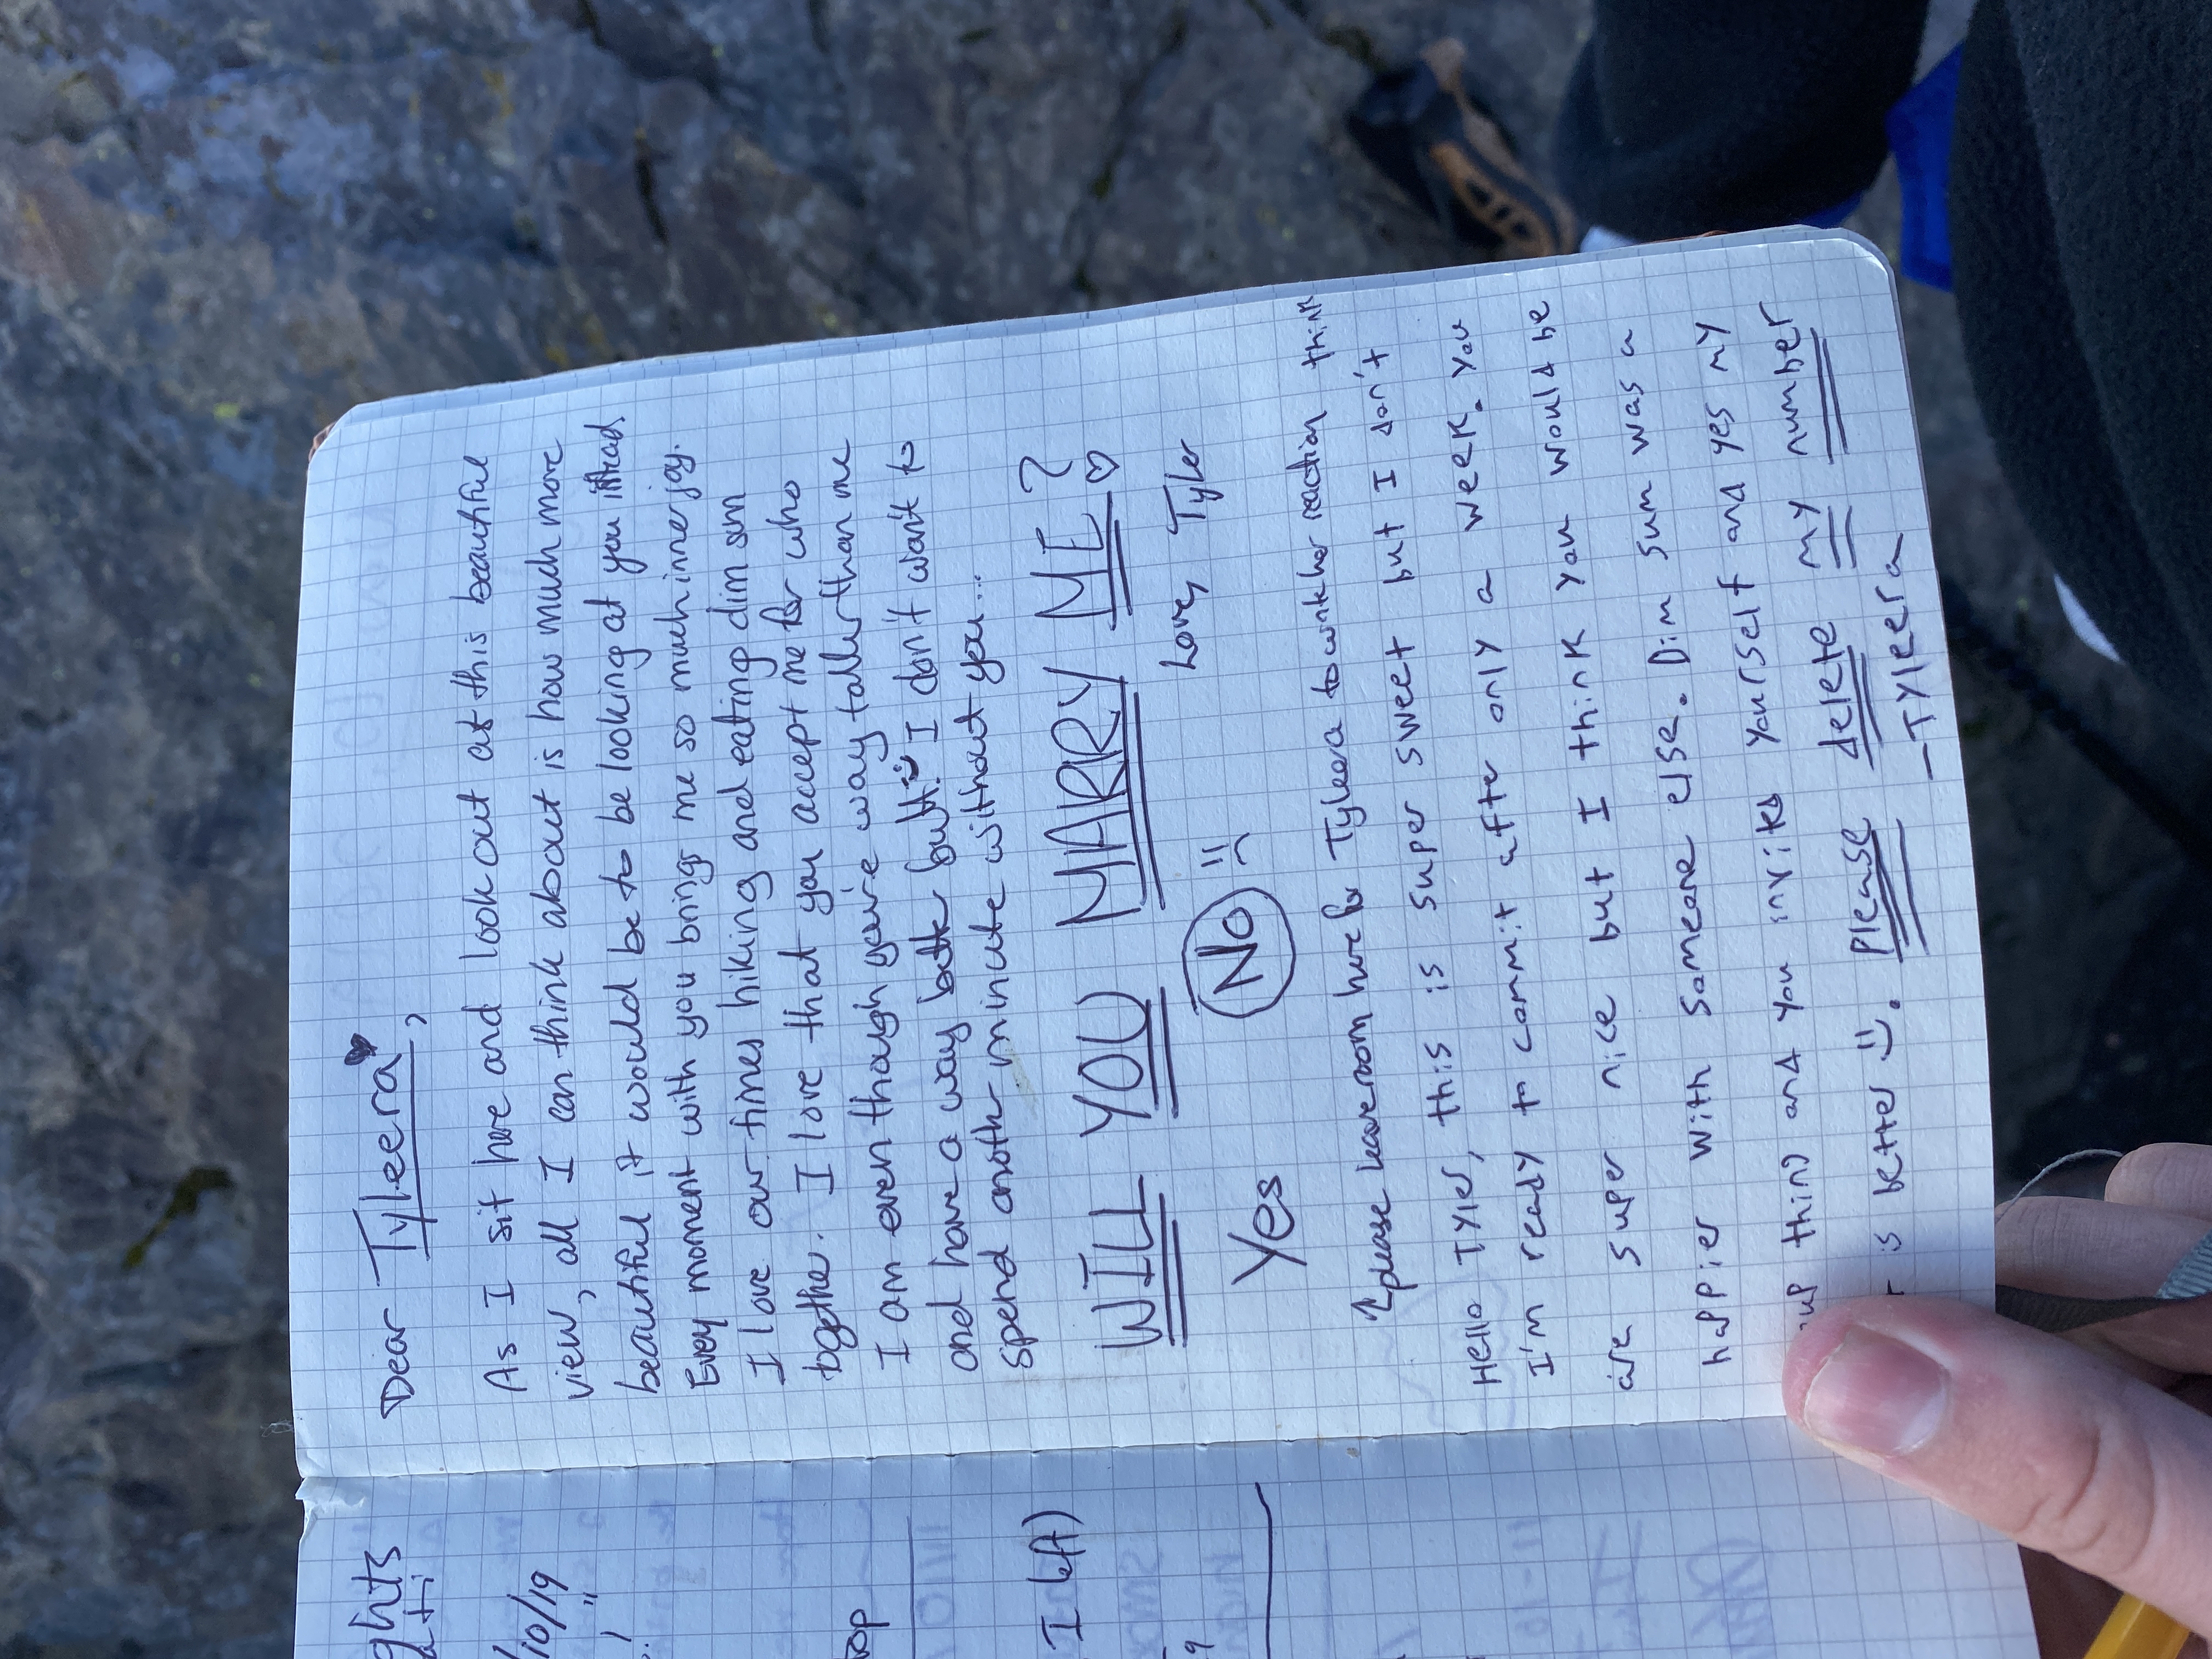 ghts
/10/19
top
I left)
Dear Tyleera,
As I sit here and look out at this beautiful
view, all I can think about is how much more
beautiful it would be to be looking at you instead.
Every moment with you brings me so much inner joy.
I love our times hiking and eating dim sum
together. I love that you accept me for who
I am even though you're way taller than me
and have a way better butt. I don't want to
spend another minute without you...
WILL YOU MARRY ME?
Love, Tyler
Yes No
↑please leave room here for Tyleera to write her reaction think
Hello Tyler, this is super sweet but I don't
I'm ready to commit after only a week. You
are super nice but I think you would be
happier with someone else. Dim sum was a
thing and you invited yourself and yes my
is better :). Please delete my number
-Tyleera